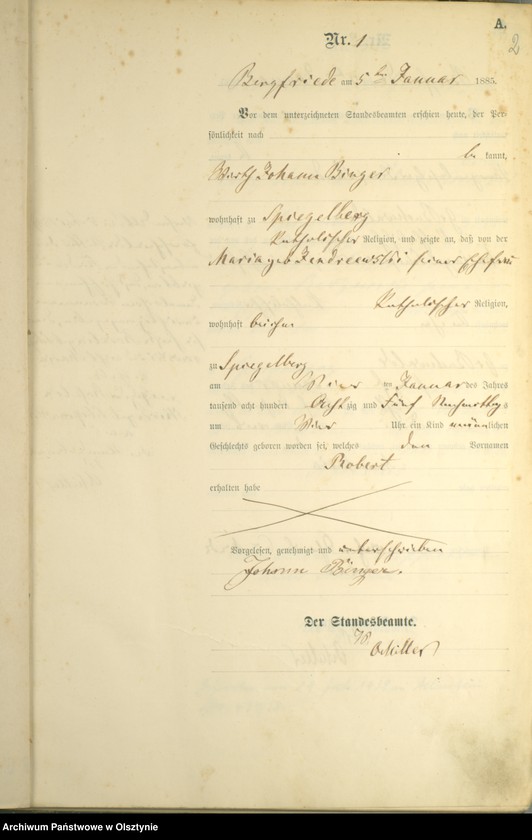 A.
2
Nr. 1
Bergfriede am 5ten Januar 1885.
Vor dem unterzeichneten Standesbeamten erschien heute, der Per-
sönlichkeit nach
be kannt,
Wirth Johann Binger
wohnhaft zu Spiegelberg
Katholischer Religion, und zeigte an, daß von der
Maria geb seiner Ehefrau
Katholischer Religion,
wohnhaft bei ihm
zu Spiegelberg
am Vier ten Januar des Jahres
tausend acht hundert Acht zig und Fünf Nachmittags
um Vier Uhr ein Kind männlichen
Geschlechts geboren worden sei, welches den Vornamen
Robert
erhalten habe
Vorgelesen, genehmigt und unterschrieben
Johann Binger.
Der Standesbeamte.
Archiwum Państwowe w Olsztynie